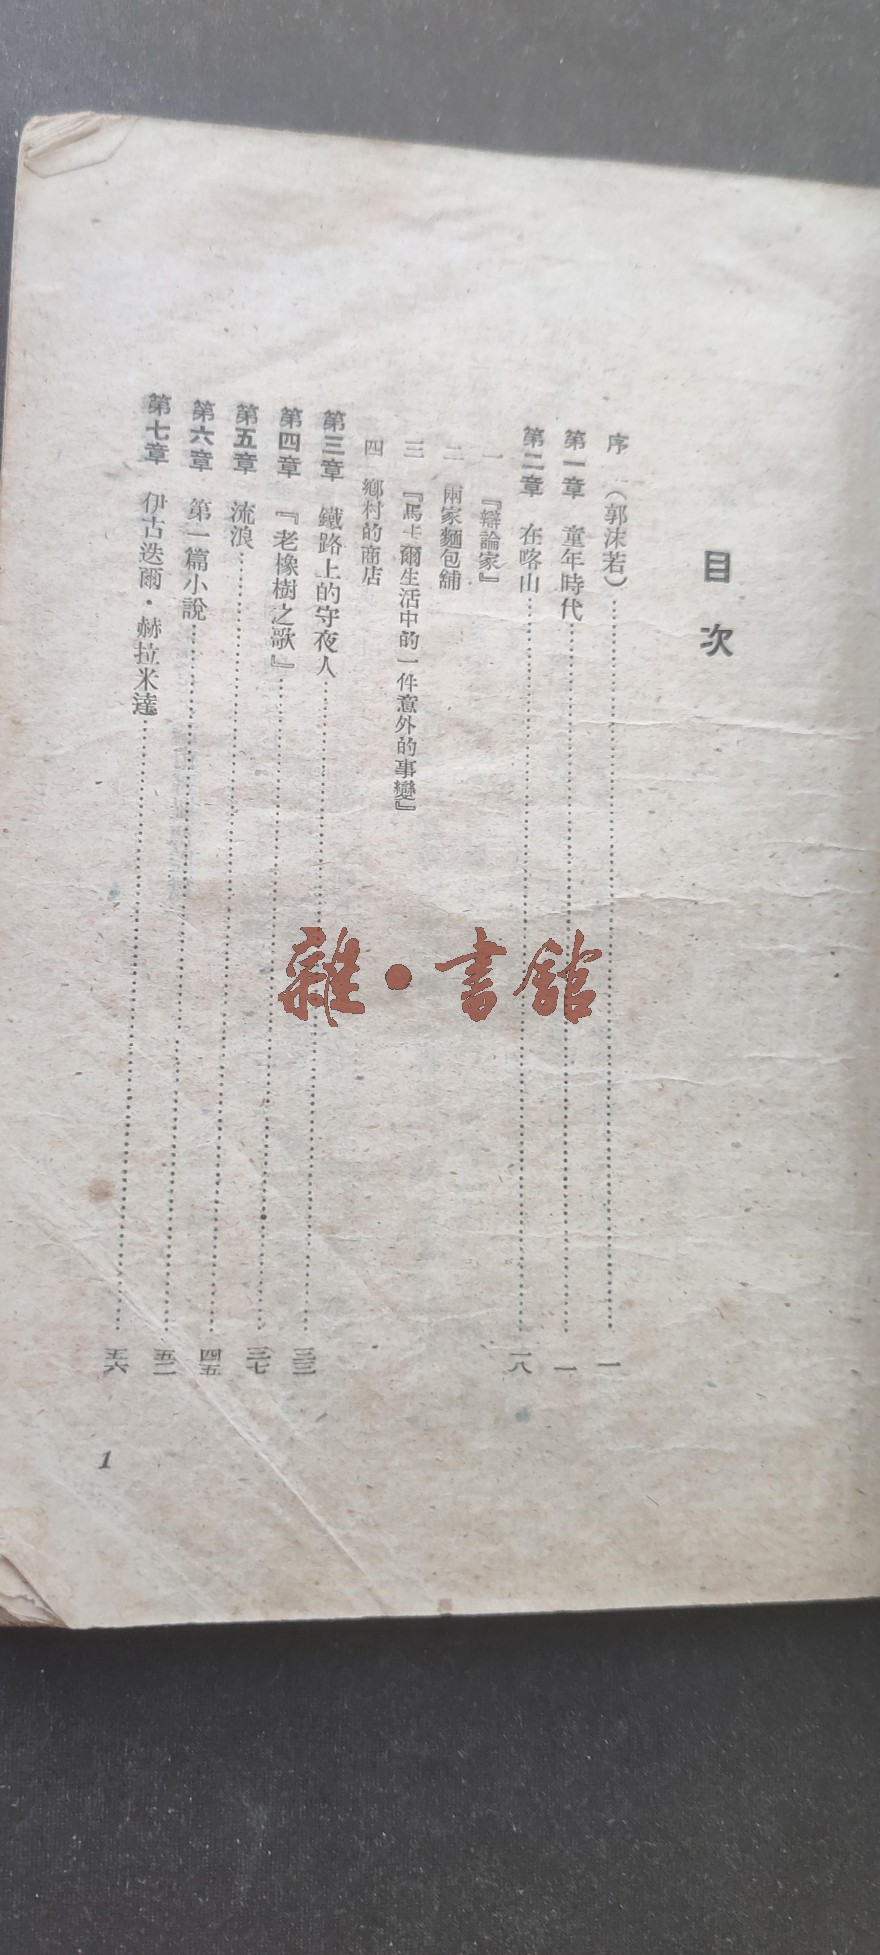 目次
序（郭沫若）…………一
第一章 童年時代…………一
第二章 在喀山…………一八
一 『辯論家』
二 兩家麵包舖
三 『馬卡爾生活中的一件意外的事變』
四 鄉村的商店
第三章 鐵路上的守夜人…………三三
第四章 『老橡樹之歌』…………三七
第五章 流浪…………四五
第六章 第一篇小說…………五二
第七章 伊古迭爾·赫拉米達…………五六
1
雜·書館